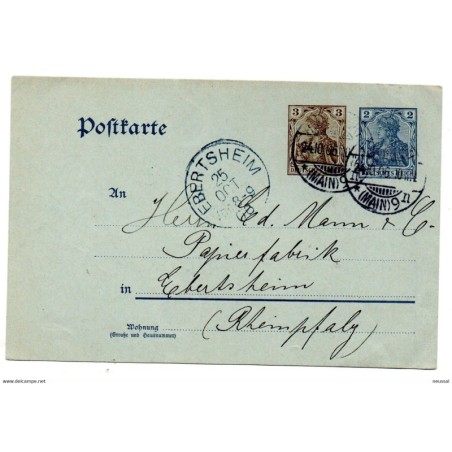 Postkarte
3
2
DEUTSCHES REICH
24.10.
(MAIN) 9
(MAIN) 9 n
EBERTSHEIM
25
OCT
An
Herrn Ed. Mann & Co.
Papierfabrik
in Ebertsheim
(Rheinpfalz)
Wohnung
(Straße und Hausnummer)
www.delcampe.net
meussel